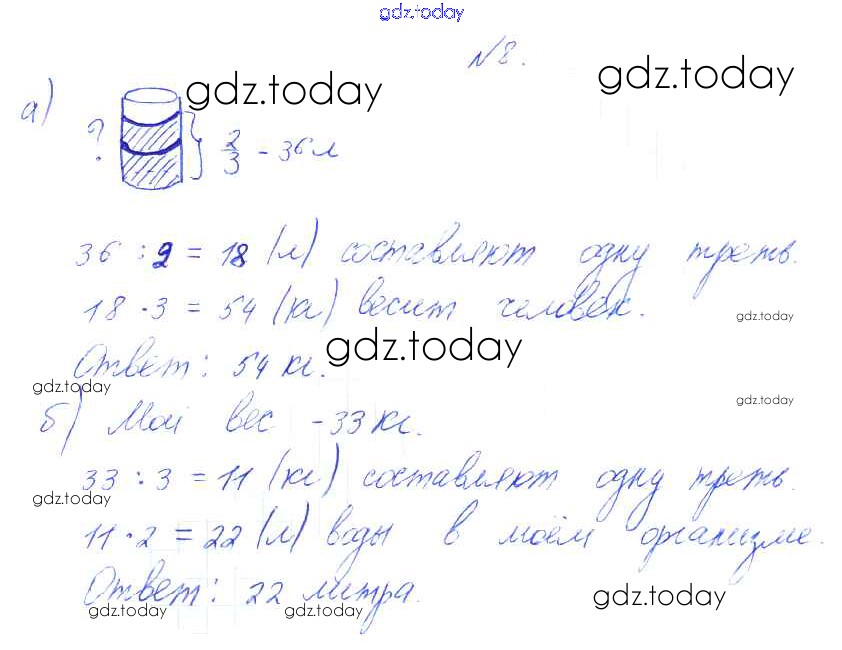 gdz.today
№8.
gdz.today
gdz.today
а)
? } 2/3 - 36 л
36 : 2 = 18 (л) составляют одну треть.
18 · 3 = 54 (кг) весит человек.
gdz.today
gdz.today
Ответ: 54 кг.
gdz.today
gdz.today
б) Мой вес - 33 кг.
33 : 3 = 11 (кг) составляют одну треть.
gdz.today
11 · 2 = 22 (л) воды в моём организме.
Ответ: 22 литра.
gdz.today
gdz.today
gdz.today